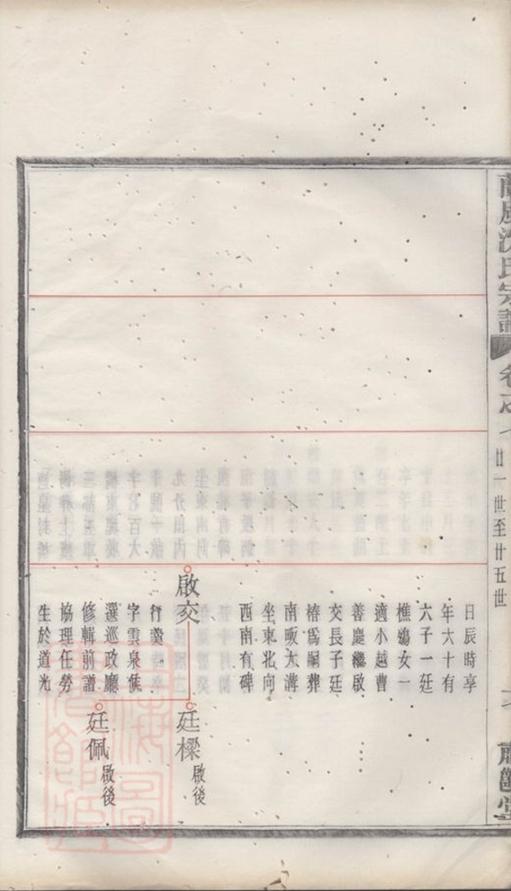 沈氏宗譜
廿一世至廿五世
日辰時享
年六十有
六子一廷
樵鴻女一
適小越曹
善慶繼啟
交長子廷
椿為嗣葬
南畈大溝
坐東北向
西南有碑
啟交
行
字雲泉候
選巡政廳
修輯前譜
協理任勞
生於道光
廷樑
啟後
廷佩
啟後